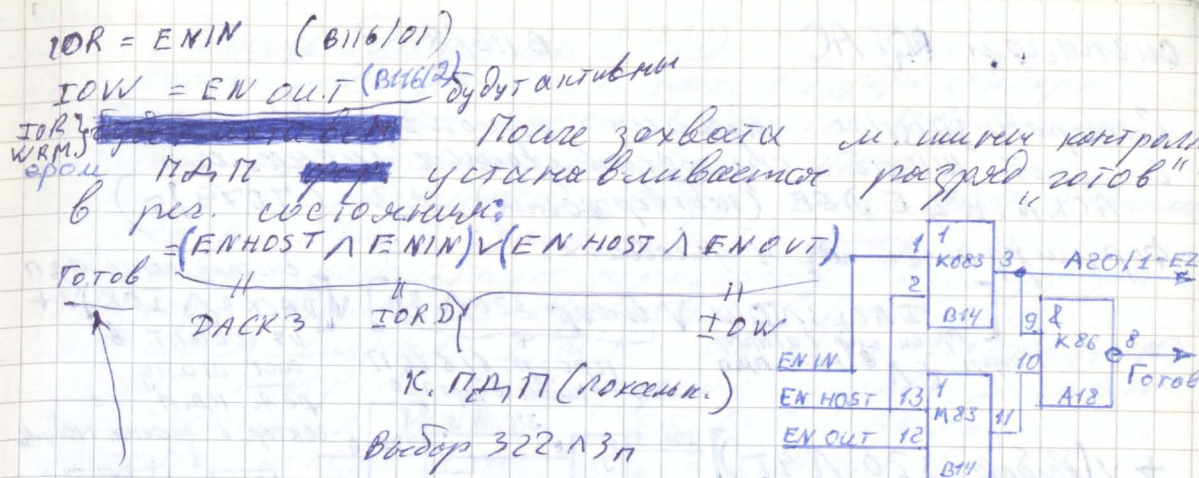 IOR = ENIN (B116/01)
IOW = EN OUT (B116/2) будут активны
IOR}
WRM}
После захвата м. шины контролл
ером ПДП устанавливается разряд „готов“
в рег. состояния:
Готов = (ENHOST ∧ ENIN) ∨ (EN HOST ∧ ENOUT)
DACK3 IORD IOW
К. ПДП (локальн.)
Выбор 322 ∧ Зп
1 1 К683 3 A20/1-EZ
2
B14
9 & К86 8
10 Готов
A18
EN IN
EN HOST 13 1
M83 11
EN OUT 12
B14